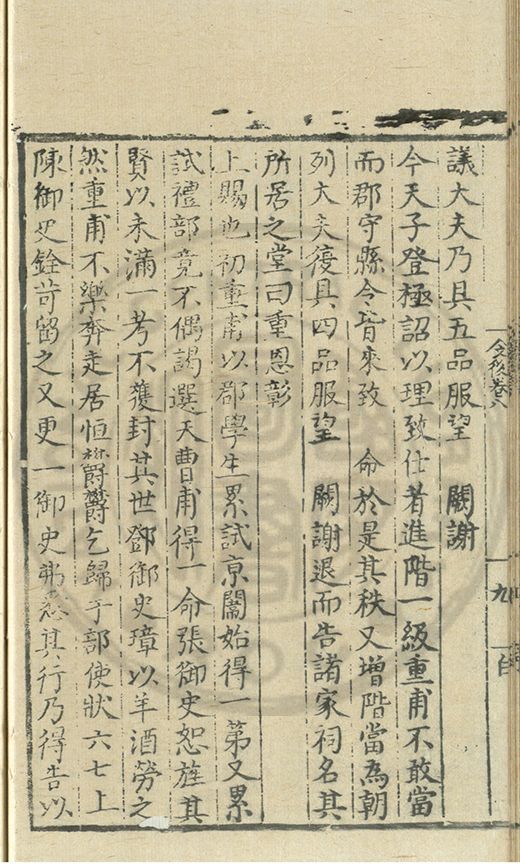 議大夫乃具五品服望　闕謝
今天子登極詔以理致仕者進階一級重甫不敢當
而郡守縣令皆來致　命於是其秩又增階當為朝
列大夫復具四品服望　闕謝退而告諸家祠名其
所居之堂曰重恩彰
上賜也初重甫以郡學生累試京闈始得一第又累
試禮部竟不偶謁選天曹甫得一命張御史恕旌其
賢以未滿一考不獲封其世鄧御史璋以羊酒勞之
然重甫不樂奔走居恒欝欝乞歸于部使狀六七上
陳御史銓苛留之又更一御史弗患其行乃得告以
卷八
九